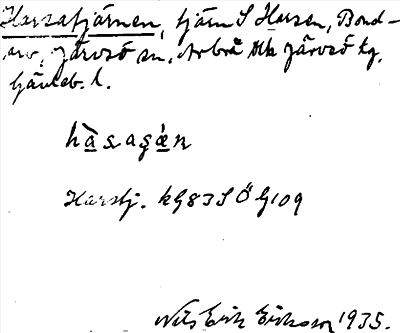 Harsatjärnen, tjärn S Harsen, Bond-
arv, Järvsö sn, Arbrå o Järvsö tg,
Gävleb. l.
hàsaʂǽn
Harstj. kg 83 SÖ G 109
Nils Erik Eriksson 1935.